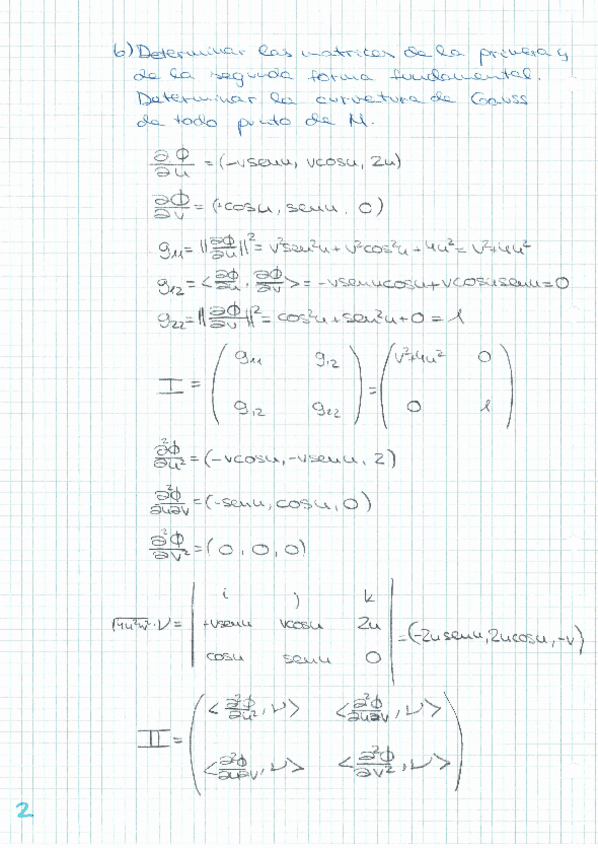 b) Determinar las matrices de la primera y
de la segunda forma fundamental.
Determinar la curvatura de Gauss
de todo punto de M.
∂Φ/∂u = (-vsenu, vcosu, 2u)
∂Φ/∂v = (+cosu, senu, 0)
g₁₁ = ||∂Φ/∂u||² = v²sen²u + v²cos²u + 4u² = v²+4u²
g₁₂ = <∂Φ/∂u, ∂Φ/∂v> = -vsenucosu + vcosusenu = 0
g₂₂ = ||∂Φ/∂v||² = cos²u + sen²u + 0 = 1
I = ( g₁₁ g₁₂ ; g₁₂ g₂₂ ) = ( v²+4u² 0 ; 0 1 )
∂²Φ/∂u² = (-vcosu, -vsenu, 2)
∂²Φ/∂u∂v = (-senu, cosu, 0)
∂²Φ/∂v² = (0, 0, 0)
i j k
+vsenu vcosu 2u = (-2usenu, 2ucosu, -v)
cosu senu 0
II = ( <∂²Φ/∂u², ν> <∂²Φ/∂u∂v, ν> ; <∂²Φ/∂u∂v, ν> <∂²Φ/∂v², ν> )
2